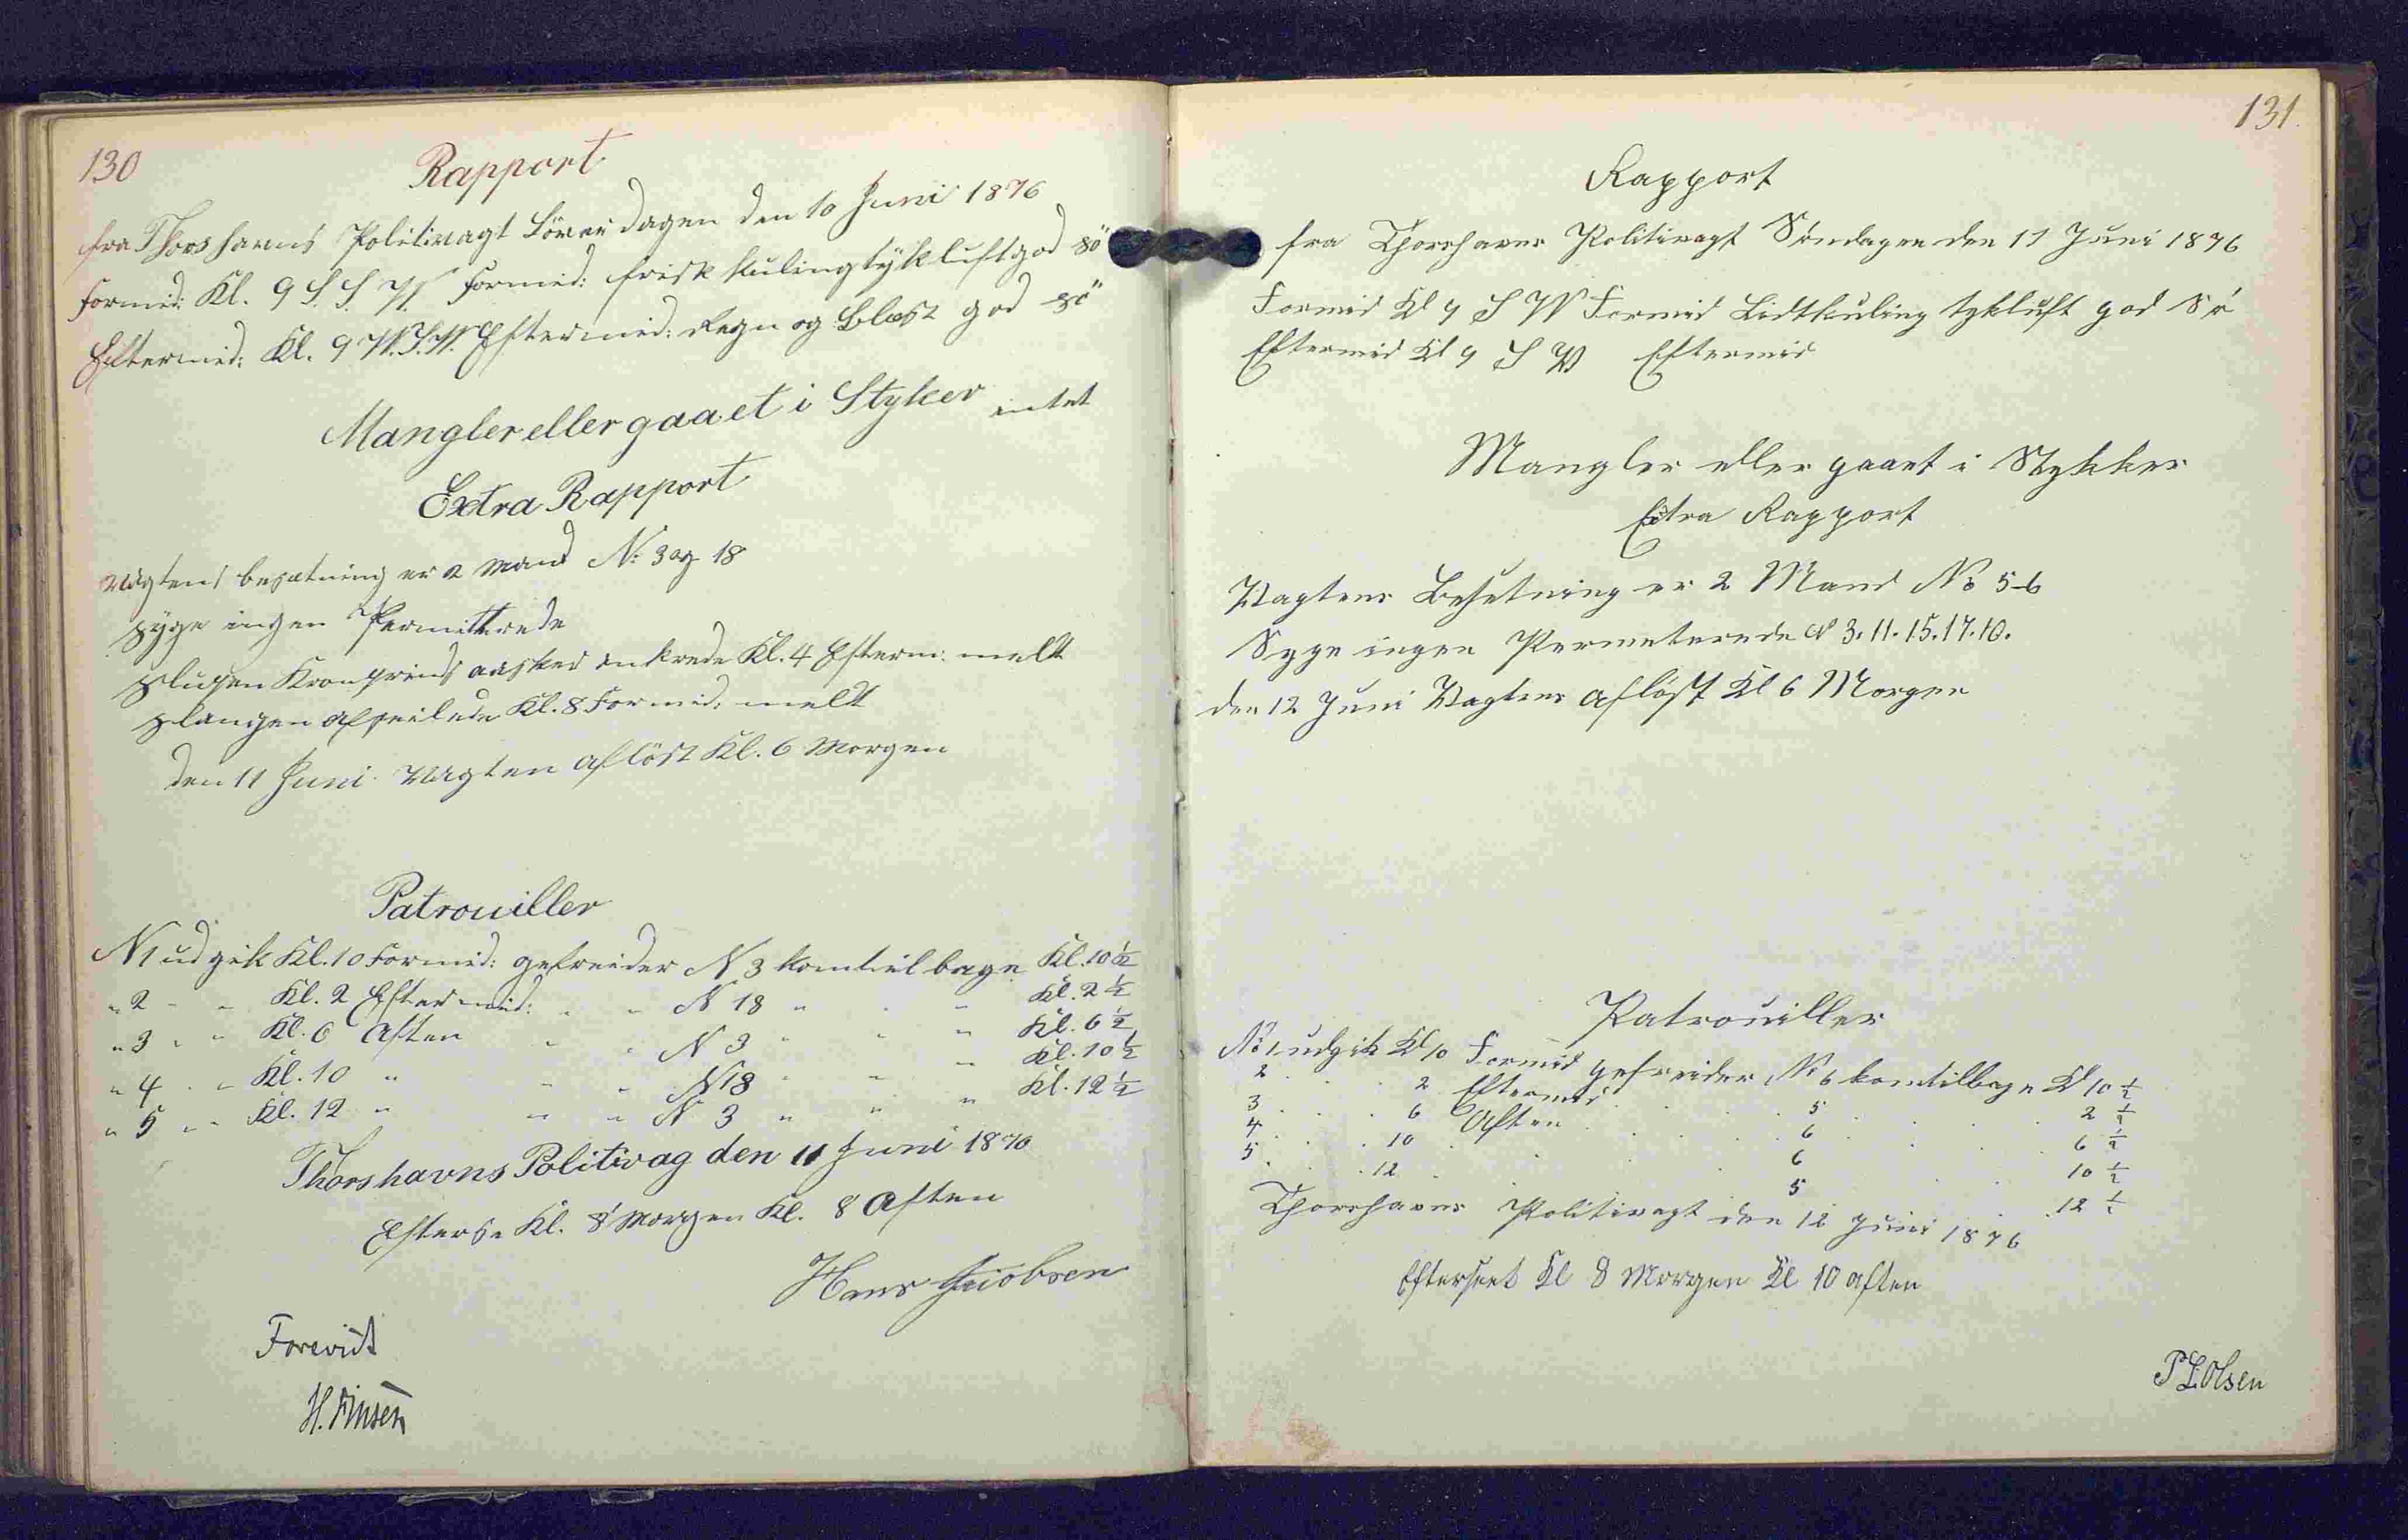 130
Rapport
fra Thorshavns Politivagt Löverdagen den 10 Juni 1876
Formid: Kl. 9 S. S. W. Formid: frisk kuling tykluft god Sö
Eftermid: Kl. 9 W.S.W. Eftermid: Regn og Blæst god Sö
Mangler eller gaaet i Styker intet
Extra Rapport
Vagtens besætning er 2 Mand N: 3 og 18
Syge ingen Permitterede
Slupen Kronprinds ankrede Kl. 4 Efterm: melt
afseilede Kl. 8 Formid: melt
den 11 Juni Vagten aflöst Kl. 6 Morgen
Patrouiller
N 1 udgik Kl. 10 Formid: gefreider N 3 kom tilbage Kl. 10 ½
" 2 " " Kl. 2 Eftermid: " " N 18 " " " Kl. 2 ½
" 3 " " Kl. 6 Aften " " N 3 " " " Kl. 6 ½
" 4 " " Kl. 10 " " " N 18 " " " Kl. 10 ½
" 5 " " Kl. 12 " " " N 3 " " " Kl. 12 ½
Thorshavns Politivag den 11 Juni 1876
Efterse Kl. 8 Morgen Kl. 8 Aften
Hans Jacobsen
Forevist
H. Finsen
131.
Rapport
fra Thorshavns Politivagt Söndagen den 11 Juni 1876
Formid Kl 9 S W Formid Lidt kuling tykluft god Sö
Eftermid Kl 9 S W Eftermid
Mangler eller gaaet i Stykker
Extra Rapport
Vagtens Besetning er 2 Mand No 5-6
Syge ingen Permeterede N 3. 11. 15. 17. 10.
den 12 Juni Vagtens aflöst Kl 6 Morgen
Patrouiller
No 1 udgik Kl 10 Formid gefreider No 6 kom tilbage Kl 10 ½
2 . . . 2 Eftermid . . . 5 . . . 2 ½
3 . . . 6 Aften . . . 6 . . . 6 ½
4 . . . 10 . . . 6 . . . 10 ½
5 . . . 12 . . . 5 . . . 12 ½
Thorshavns Politivagt den 12 Juni 1876
Efterseet Kl 8 Morgen Kl 10 aften
P L Olsen